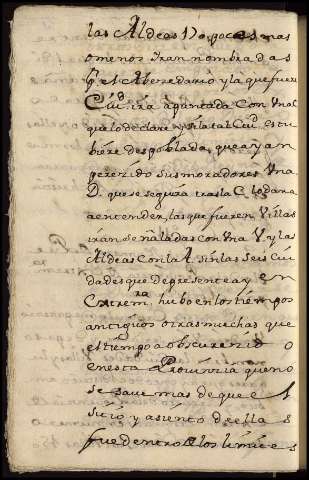 las Aldeas 170, pocas mas
o menos Iran nombradas
Pr. el Abecedario y la que fuere
Ciud. irá apuntada con Vna C
que lo declare y si la tal Ciud. estu
biere despoblada, que ayan
perecido sus moradores Vna
D. que se seguirá tras la C. lo dara
a entender, las que fueren Villas
irán señaladas con Vna V y las
Aldeas con la A. sin las seis Ciu
dades que de presente ay en
Extrem.ra hubo en los tiempos
antiguos otras muchas que
el tiempo a obscurecido
en esta Provinzia que no
se save mas de que el
sitio y asiento de ellas
fue dentro de los limites